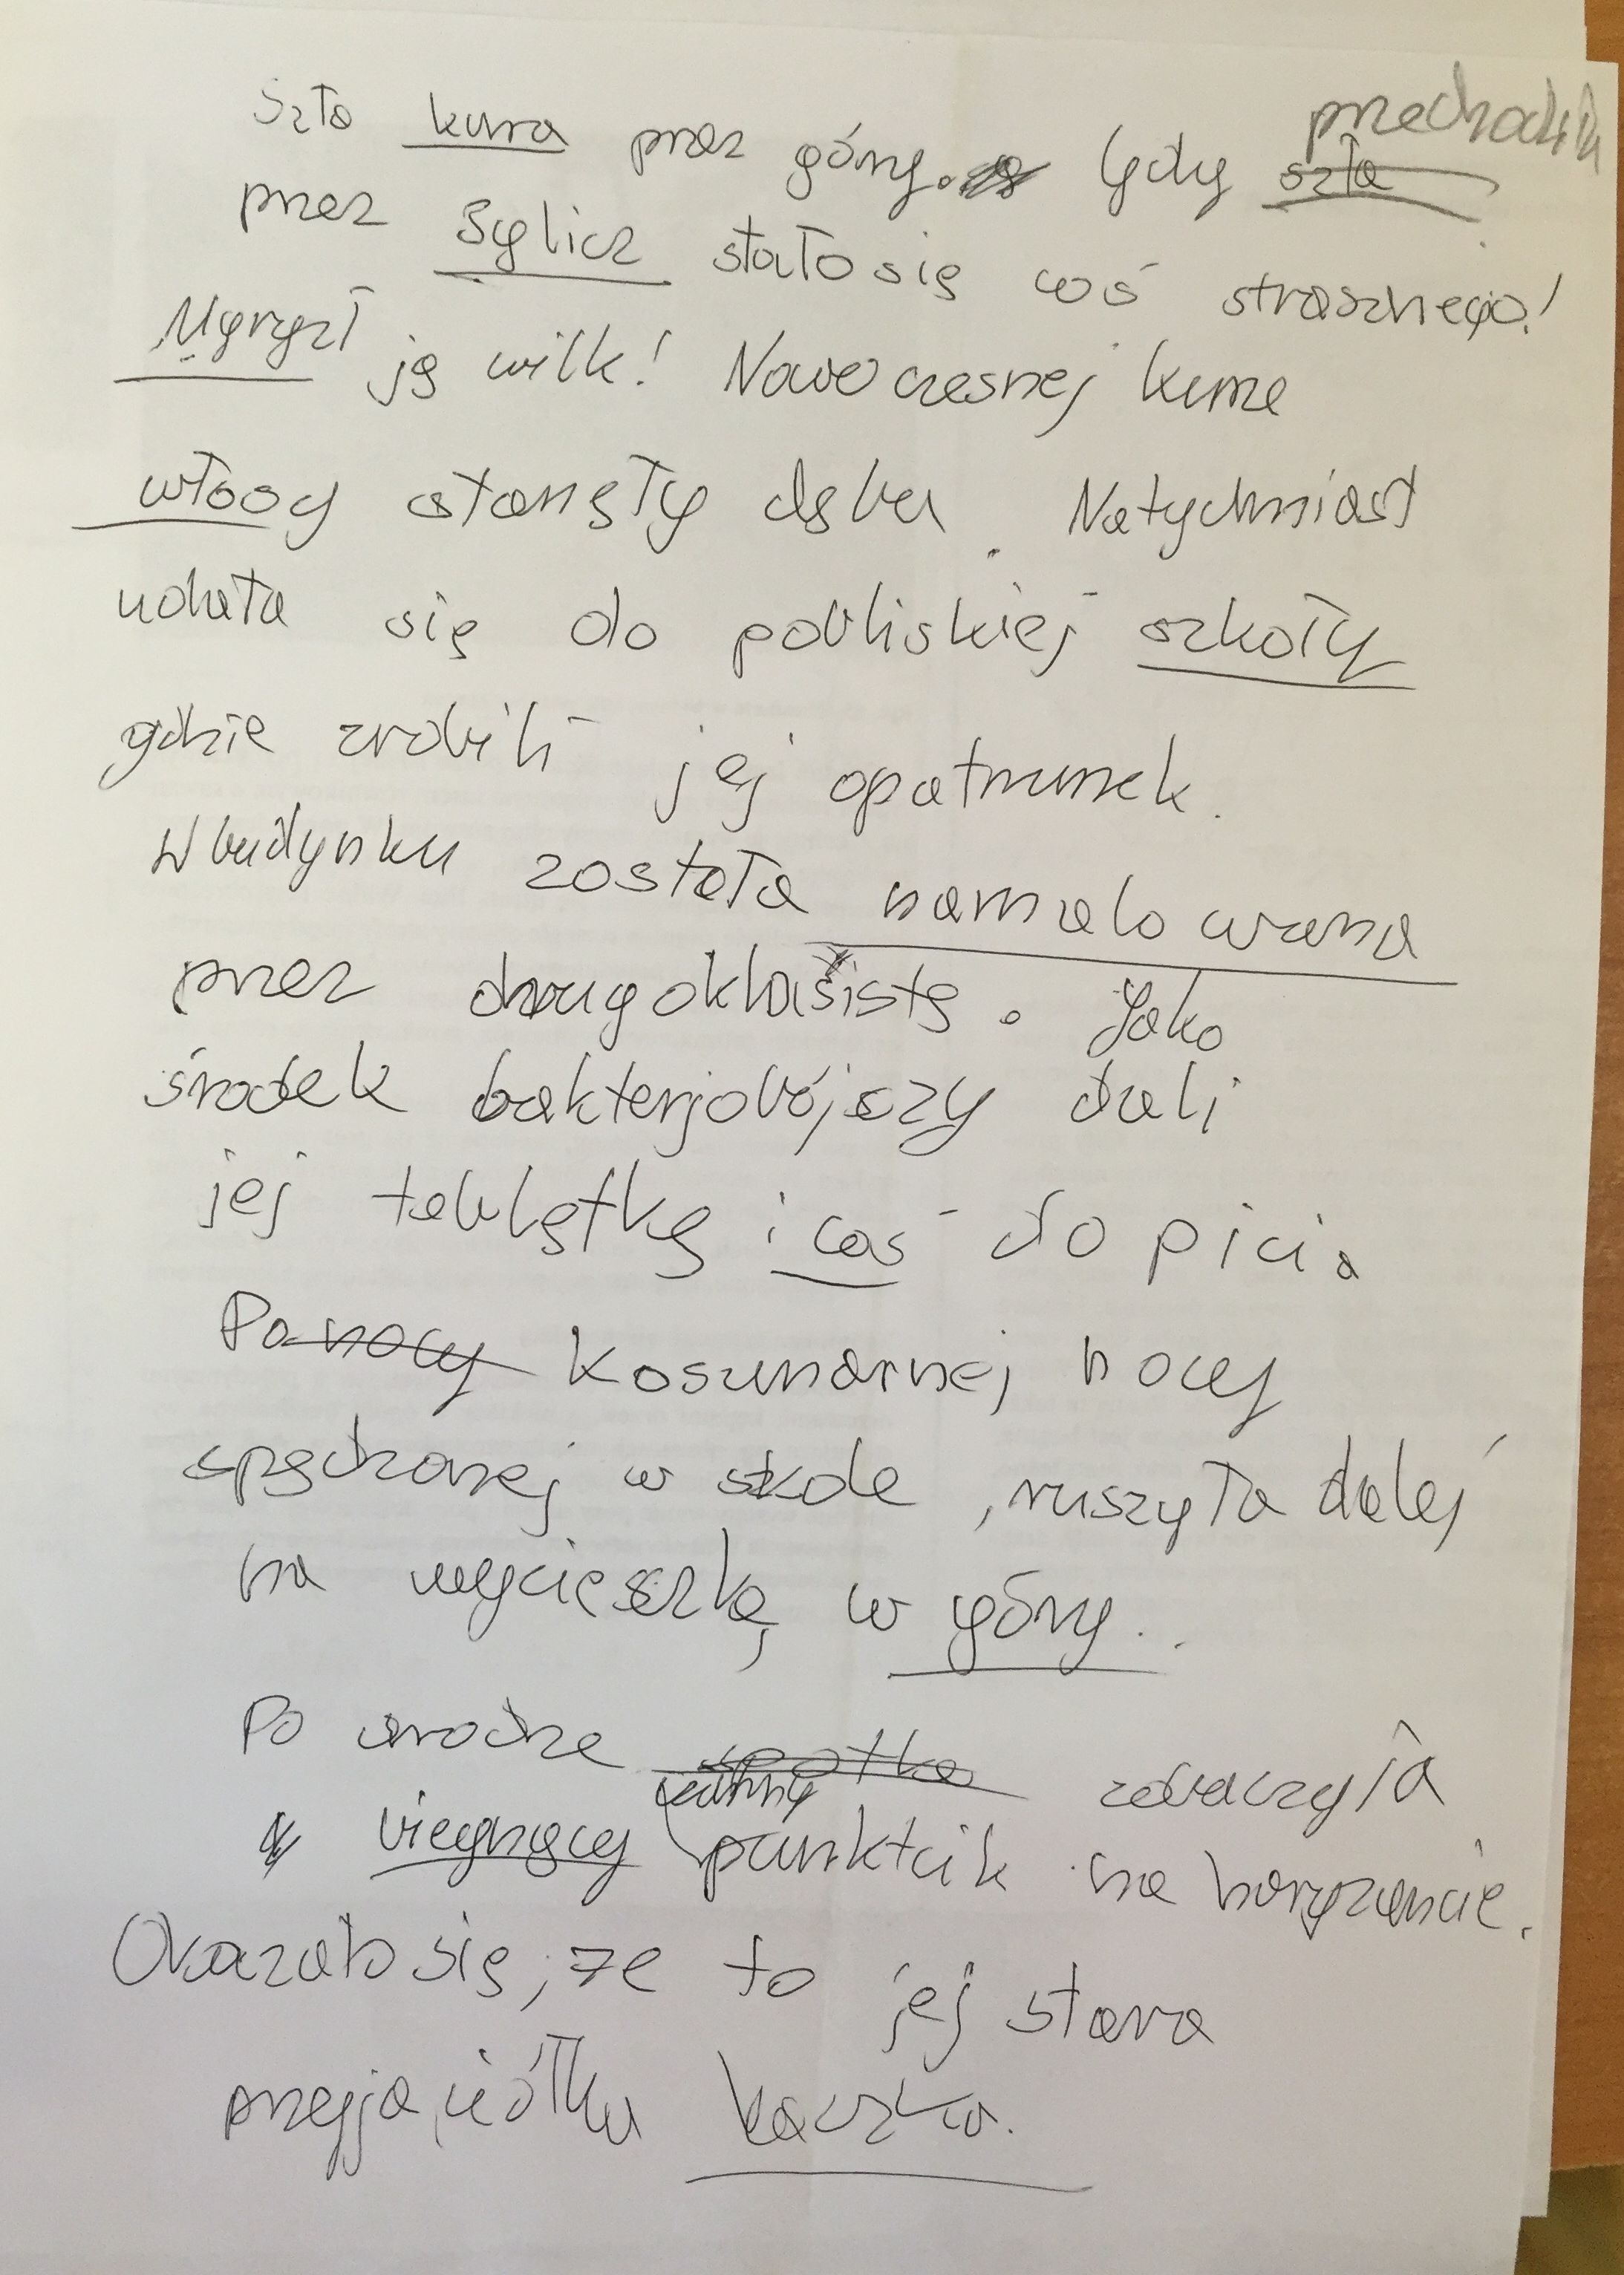 Szła kura przez góry. Gdy przechodziła
przez Sylicz stało się coś strasznego!
Ugryzł ją wilk! Nowoczesnej kurze
włosy stanęły dęba. Natychmiast
udała się do pobliskiej szkoły
gdzie zrobili jej opatrunek.
W budynku została namalowana
przez drugoklasistę. Jako
środek bakterjobójszy dali
jej tabletkę i coś do picia
Po nocy koszmarnej nocy
spędzonej w skole, ruszyła dalej
na wycieszkę w góry..
Po drodze spotka zobaczyła
biegnący jedną punkcik na horyzoncie.
Okazało się, że to jej stara
przyjaciółka kaczka.